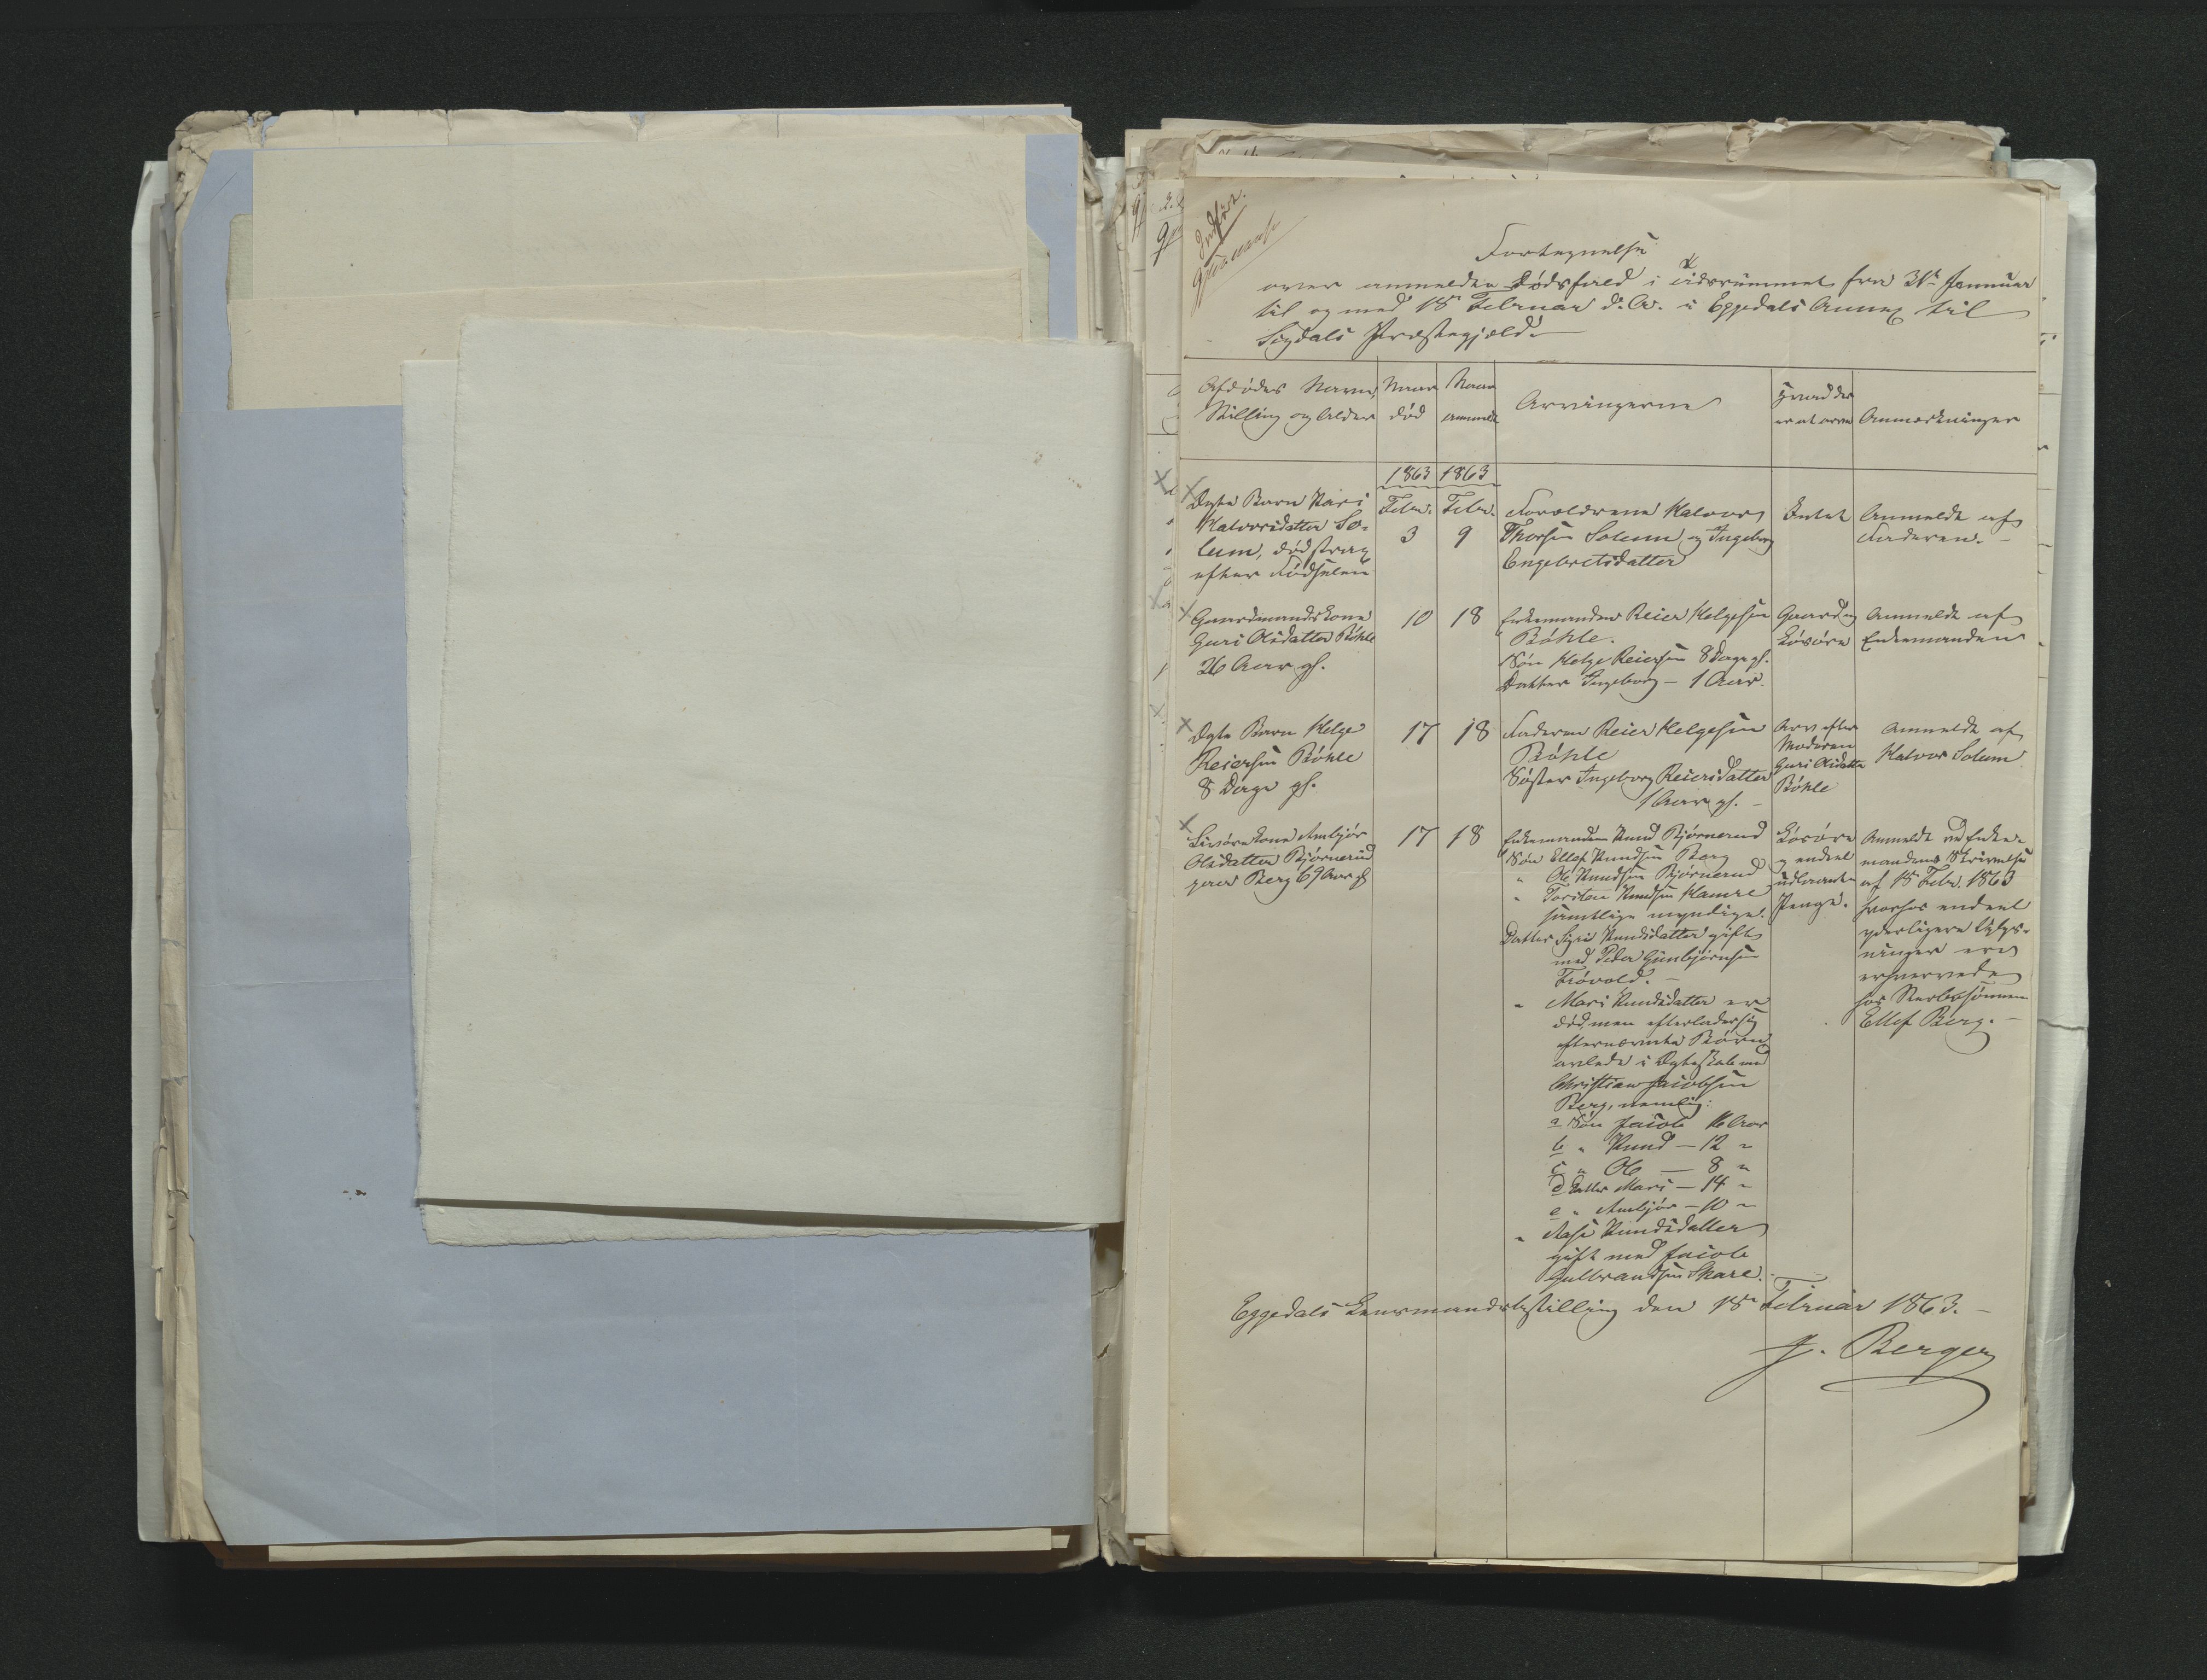 Indført.
Fortegnelse
over anmeldte Dødsfald i Tidsrummet fra 31te Januar
til og med 18de Februar d. A. i Eggedals Annex til
Sigdals Præstegjæld.
Afdødes Navn, Stilling og Alder
Naar død
Naar anmeldt
Arvingerne
Hvad der er at arve
Anmærkninger
1863 1863
Febr. Febr.
Ægte Barn Kari
Halvorsdatter So-
lum, død strax
efter Fødselen
3
9
Forældrene Halvor
Thorsen Solum og Ingeborg
Engebretsdatter
Intet
Anmeldt af
Faderen. -
Gaardmandskone
Guri Olsdatter Bøhle
26 Aar gl.
10
18
Enkemanden Reier Helgesen
Bøhle.
Søn Helge Reiersen 8 Dage gl.
Datter Ingeborg - 1 Aar.
Gaard og
Løsøre
Anmeldt af
Enkemanden
Ægte Barn Helge
Reiersen Bøhle
8 Dage gl.
17
18
Faderen Reier Helgesen
Bøhle
Søster Ingeborg Reiersdatter
1 Aar gl. -
Arv efter
Moderen
Guri Olsdatter
Bøhle
Anmeldt af
Halvor Solum
Livørekone Ambjør
Olsdatter Bjørnerud
paa Berg 69 Aar gl
17
18
Enkemanden Knud Bjørnerud
Søn Ellef Knudsen Berg
" Ole Knudsen Bjørnerud
" Torsten Knudsen Hamre
samtlige myndige.
Datter Sigri Knudsdatter gift
med Peder Gunbjørnsen
Frøvold.
" Mari Knudsdatter er
død, men efterlader sig
efternævnte Børn
avlede i Ægteskab med
Christian Jacobsen
Berg, nemlig:
a Søn Jacob 16 Aar
b " Knud - 12 "
c " Ole - 8 "
d Datter Mari - 14 "
e " Ambjør - 10 "
" Aase Knudsdatter
gift med Jacob
Gulbrandsen Skare.
Løsøre
og endeel
udlaante
Penge.
Anmeldt ved Enke-
mandens Skrivelse
af 18 Febr. 1863
hvorhos endeel
yderligere Oplys-
ninger ere
erhvervede
hos Sterbosønnen
Ellef Berg. -
Eggedals Lensmandsbestilling den 18de Februar 1863. -
J. Berger